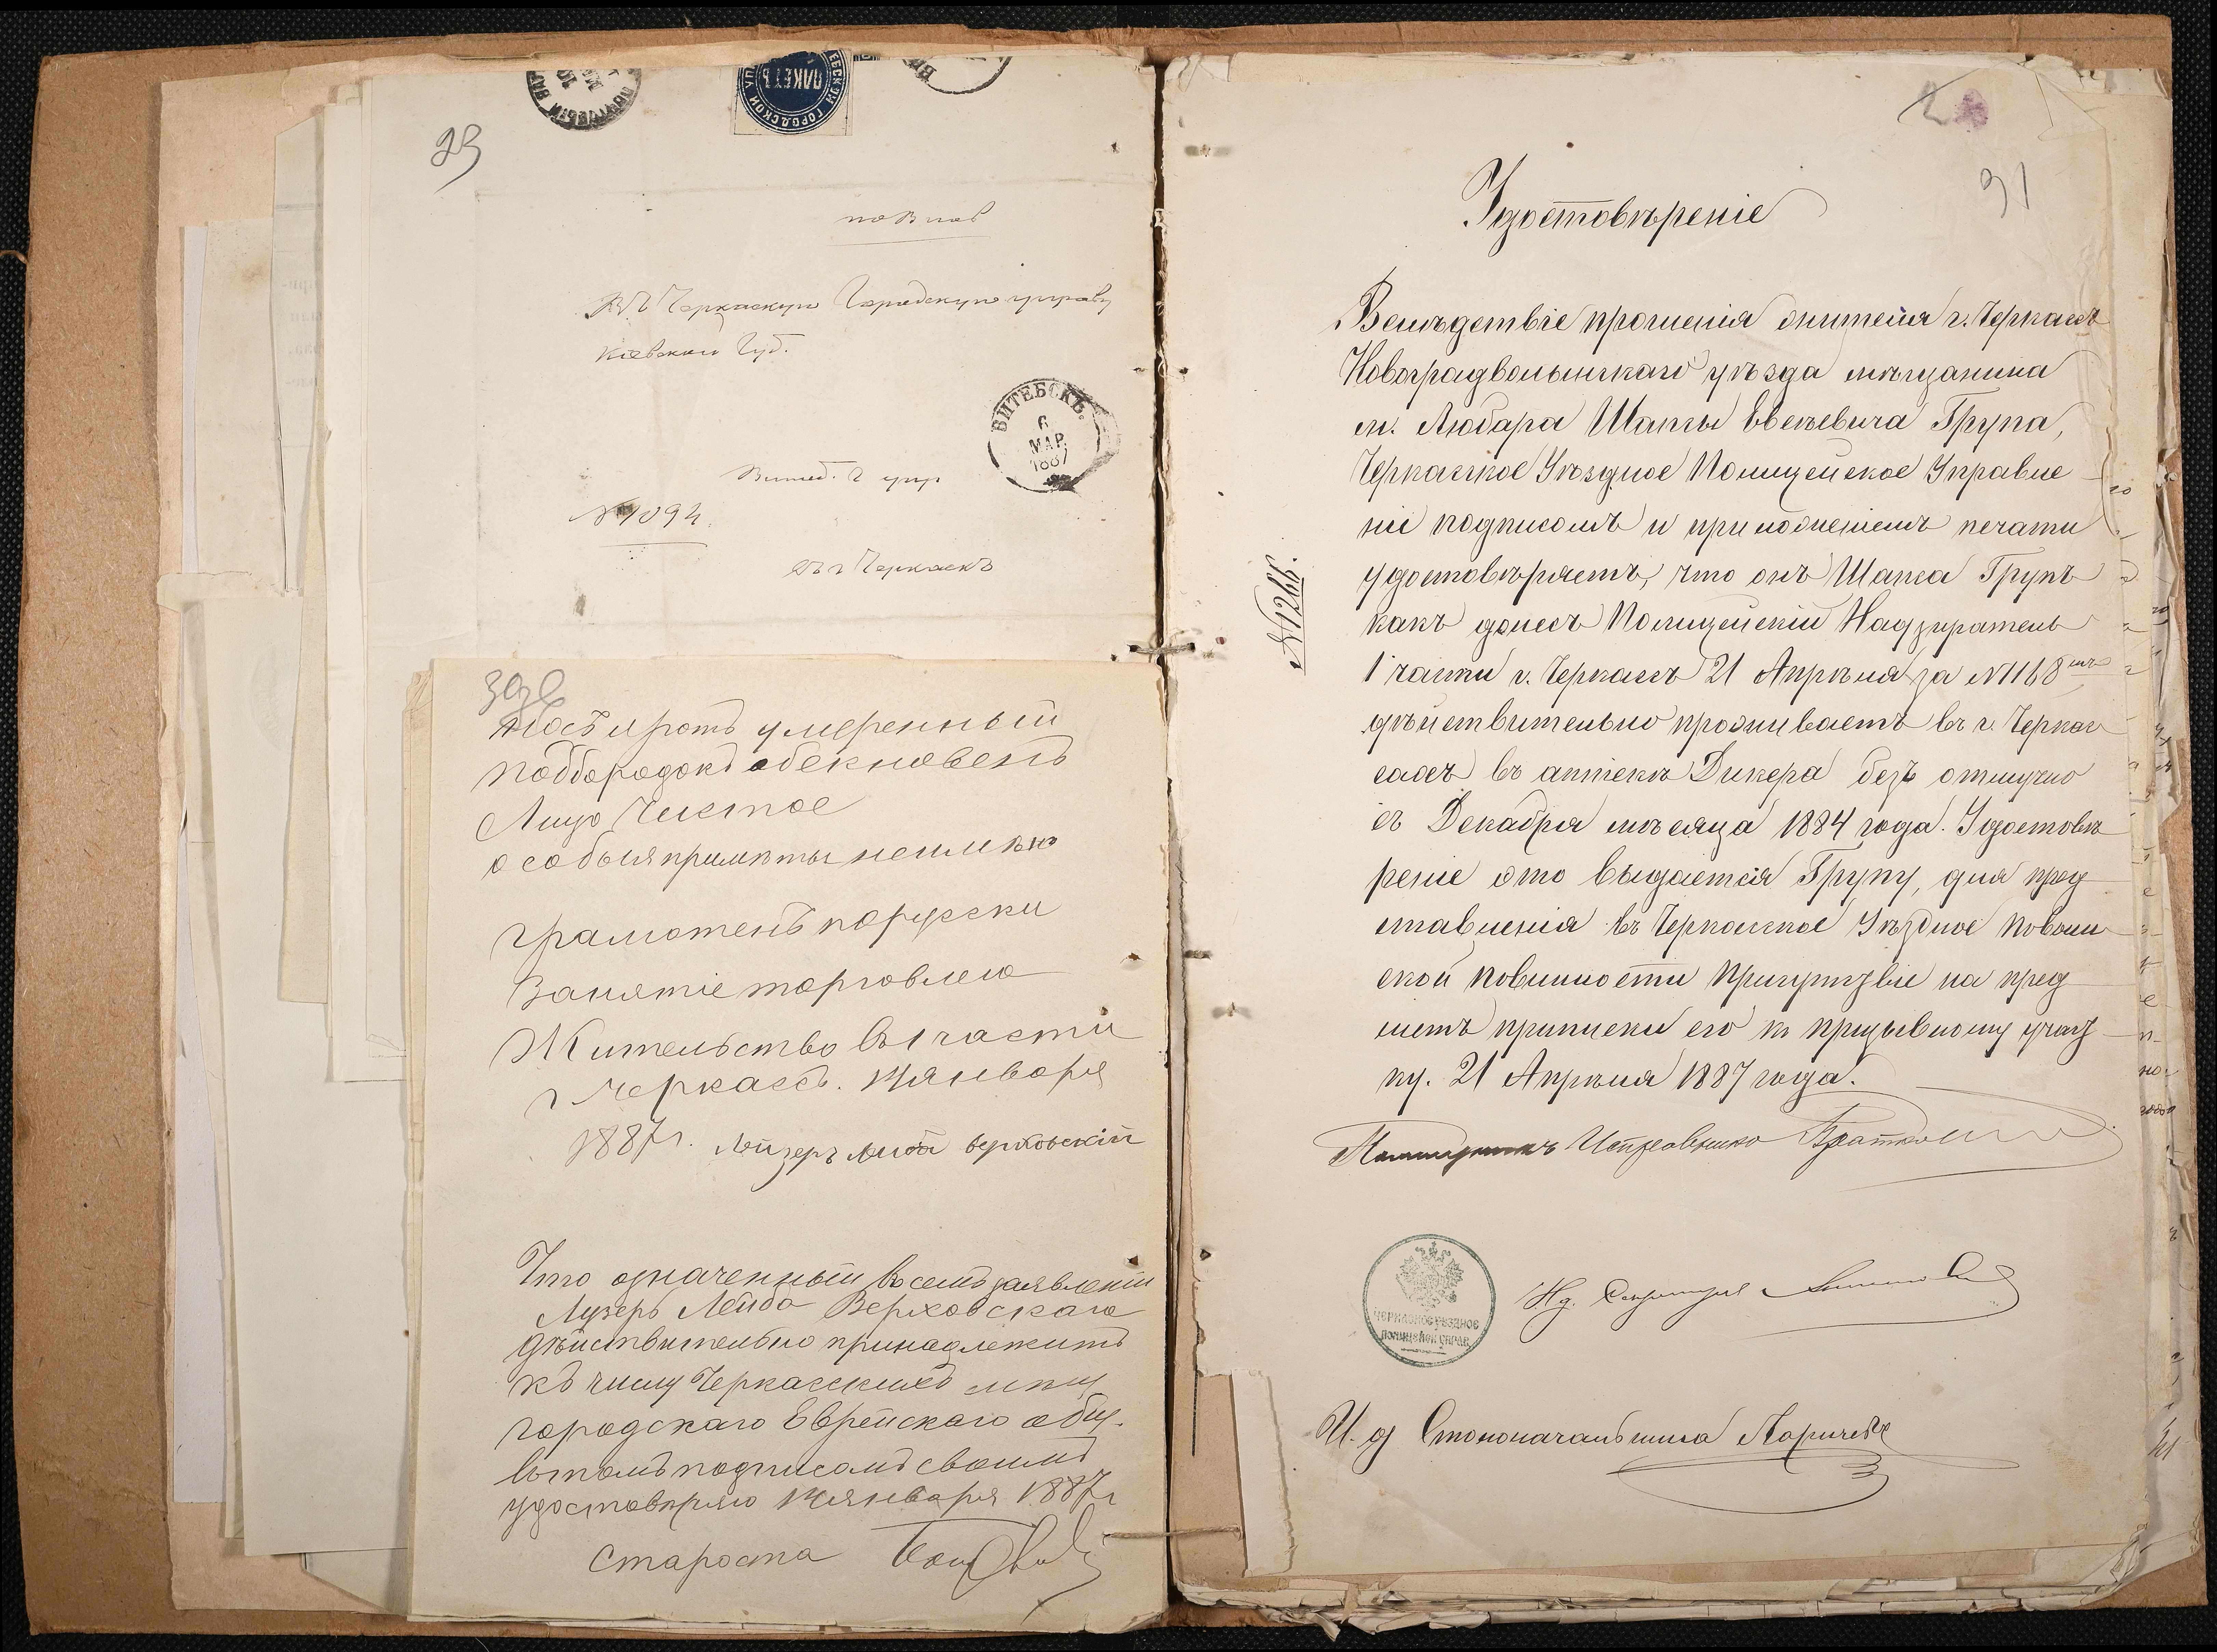 ПАКЕТЪ
ГОРОДСКОЙ
29
Въ Черкаскую Городскую управу
Кіевской Губ.
ВИТЕБСКЪ.
6
МАР.
1887
Витеб. г упр.
№ 1094.
въ г Черкасъ
Носъ и ротъ умеренный
Подбородокъ обекновенъ
Лицо Чистое
особыя приметы неимею
грамотенъ порусски
Занятіе торговлею
Жительство въ 1 части
г Черкассъ. января
1887 г. Лейзеръ Лейба Верховскій
Что означенный въ семъ заявленіи
Лузеръ Лейба Верховскаго
действительно принадлежитъ
къ числу Черкасскихъ мещ
городскаго Еврейскаго общ.
въ томъ подписомъ своимъ
удостоверяю января 1887 г
Староста
91
Удостовѣреніе
Вслѣдствіе прошенія жителя г. Черкассъ
Новоградволынскаго уѣзда мѣщанина
м. Любара Шапсы Евелевича Група,
Черкасское Уѣздное Полицейское Управле
ніе подписомъ и приложеніемъ печати
удостовѣряетъ, что онъ Шапса Групъ
какъ донесъ Полицейскій Надзиратель
1 части г. Черкассъ 21 Апрѣля за №1168мъ
дѣйствительно проживаетъ въ г. Черкас
сахъ въ аптекѣ Дикера безъ отлучно
съ Декабря мѣсяца 1884 года. Удостовѣ
реніе это выдается Групу, для пред
ставленія въ Черкасское Уѣздное по воин
ской повинности Присутствіе на пред
метъ приписки его къ призывному участ
ку. 21 Апрѣля 1887 года.
№ 1266.
Исправника
ЧЕРКАСКОЕ УѢЗДНОЕ
ПОЛИЦЕЙСК. УПРАВ.
Секретаря
И. д Столоначальника Ларичевъ